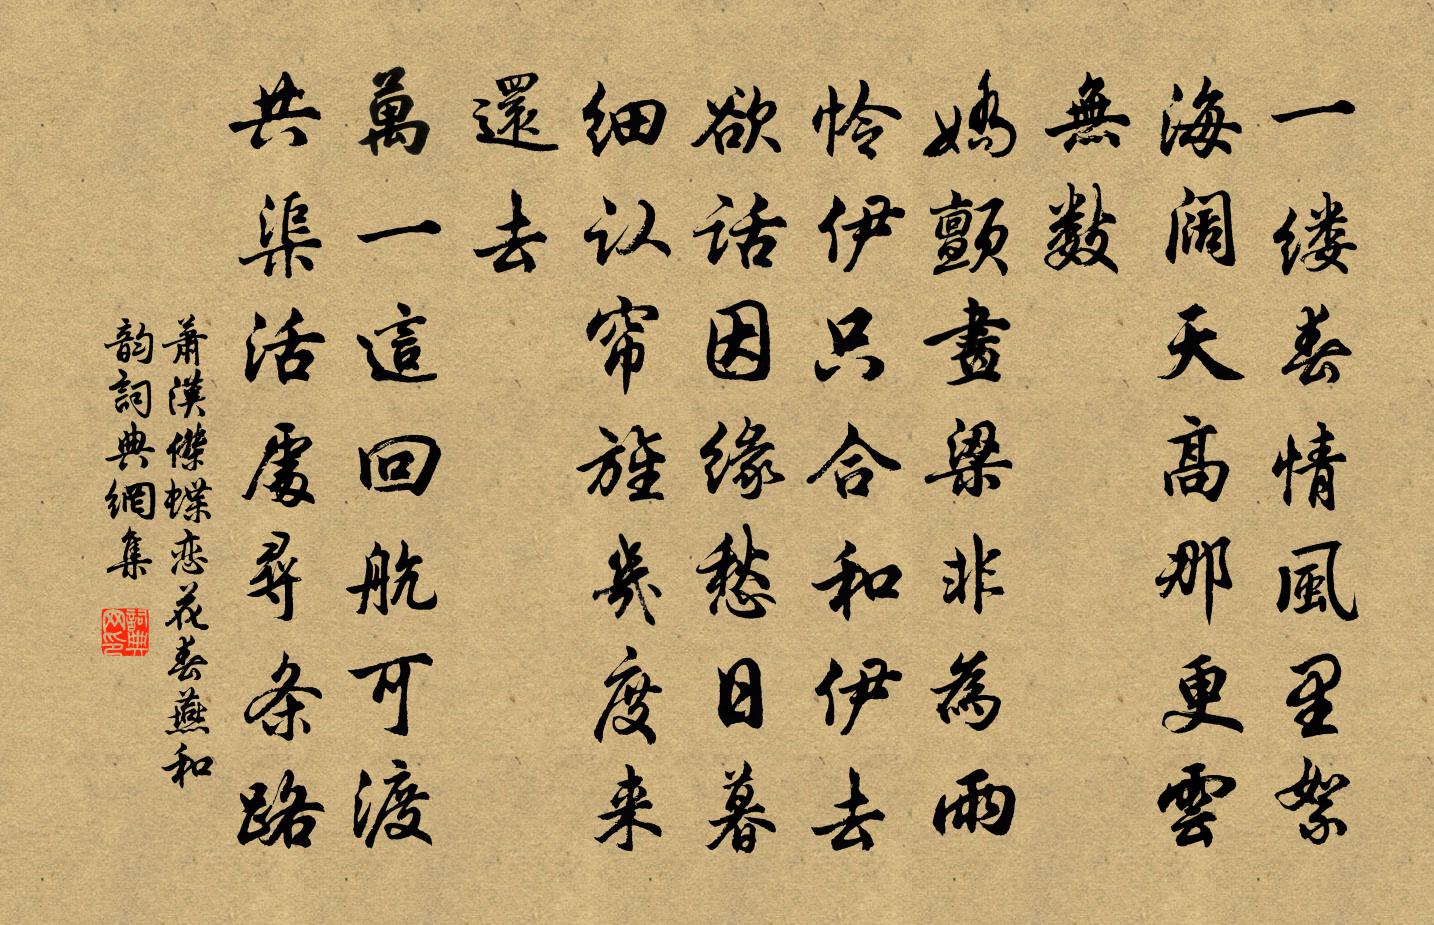 一缕春情風里絮
海阔天高那更雲
無数
嬌顫畫梁非為雨
怜伊只合和伊去
欲话因缘愁日暮
细认帘旌幾度来
還去
萬一這回航可渡
共渠活處尋条路
萧漢傑蝶恋花春燕和
韵詞典網集
詞典网印